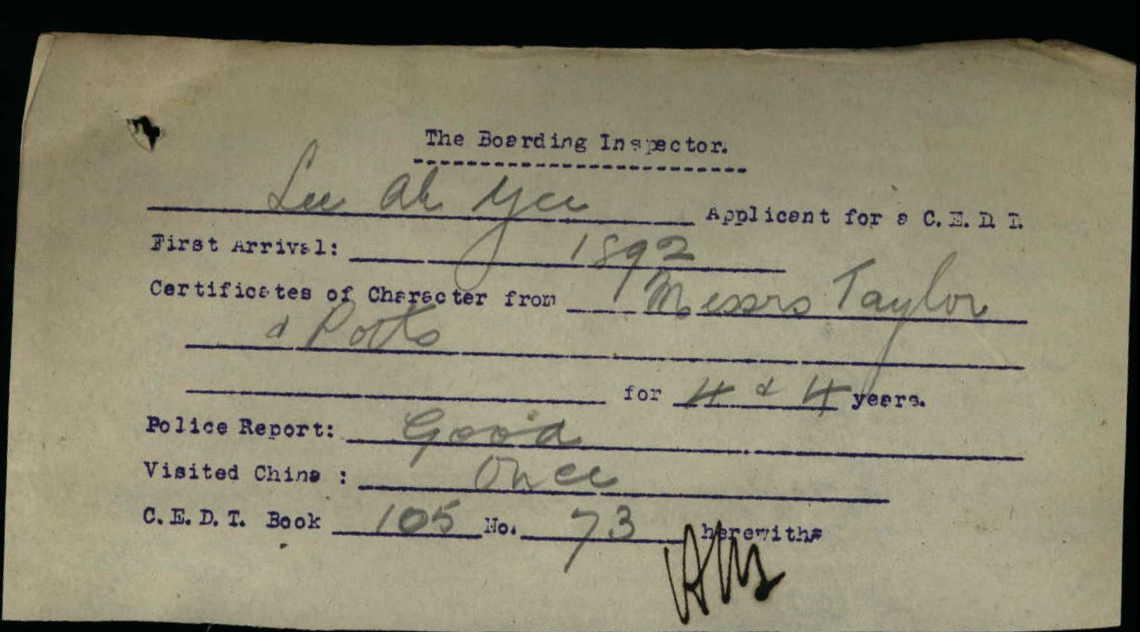 The Boarding Inspector.
Lee Ah Yee Applicant for a C.E.D.T.
First Arrival: 1892
Certificates of Character from Messrs Taylor
& Potts
for 4 & 4 years.
Police Report: Good
Visited China : Once
C.E.D.T. Book 105 No. 73 herewith